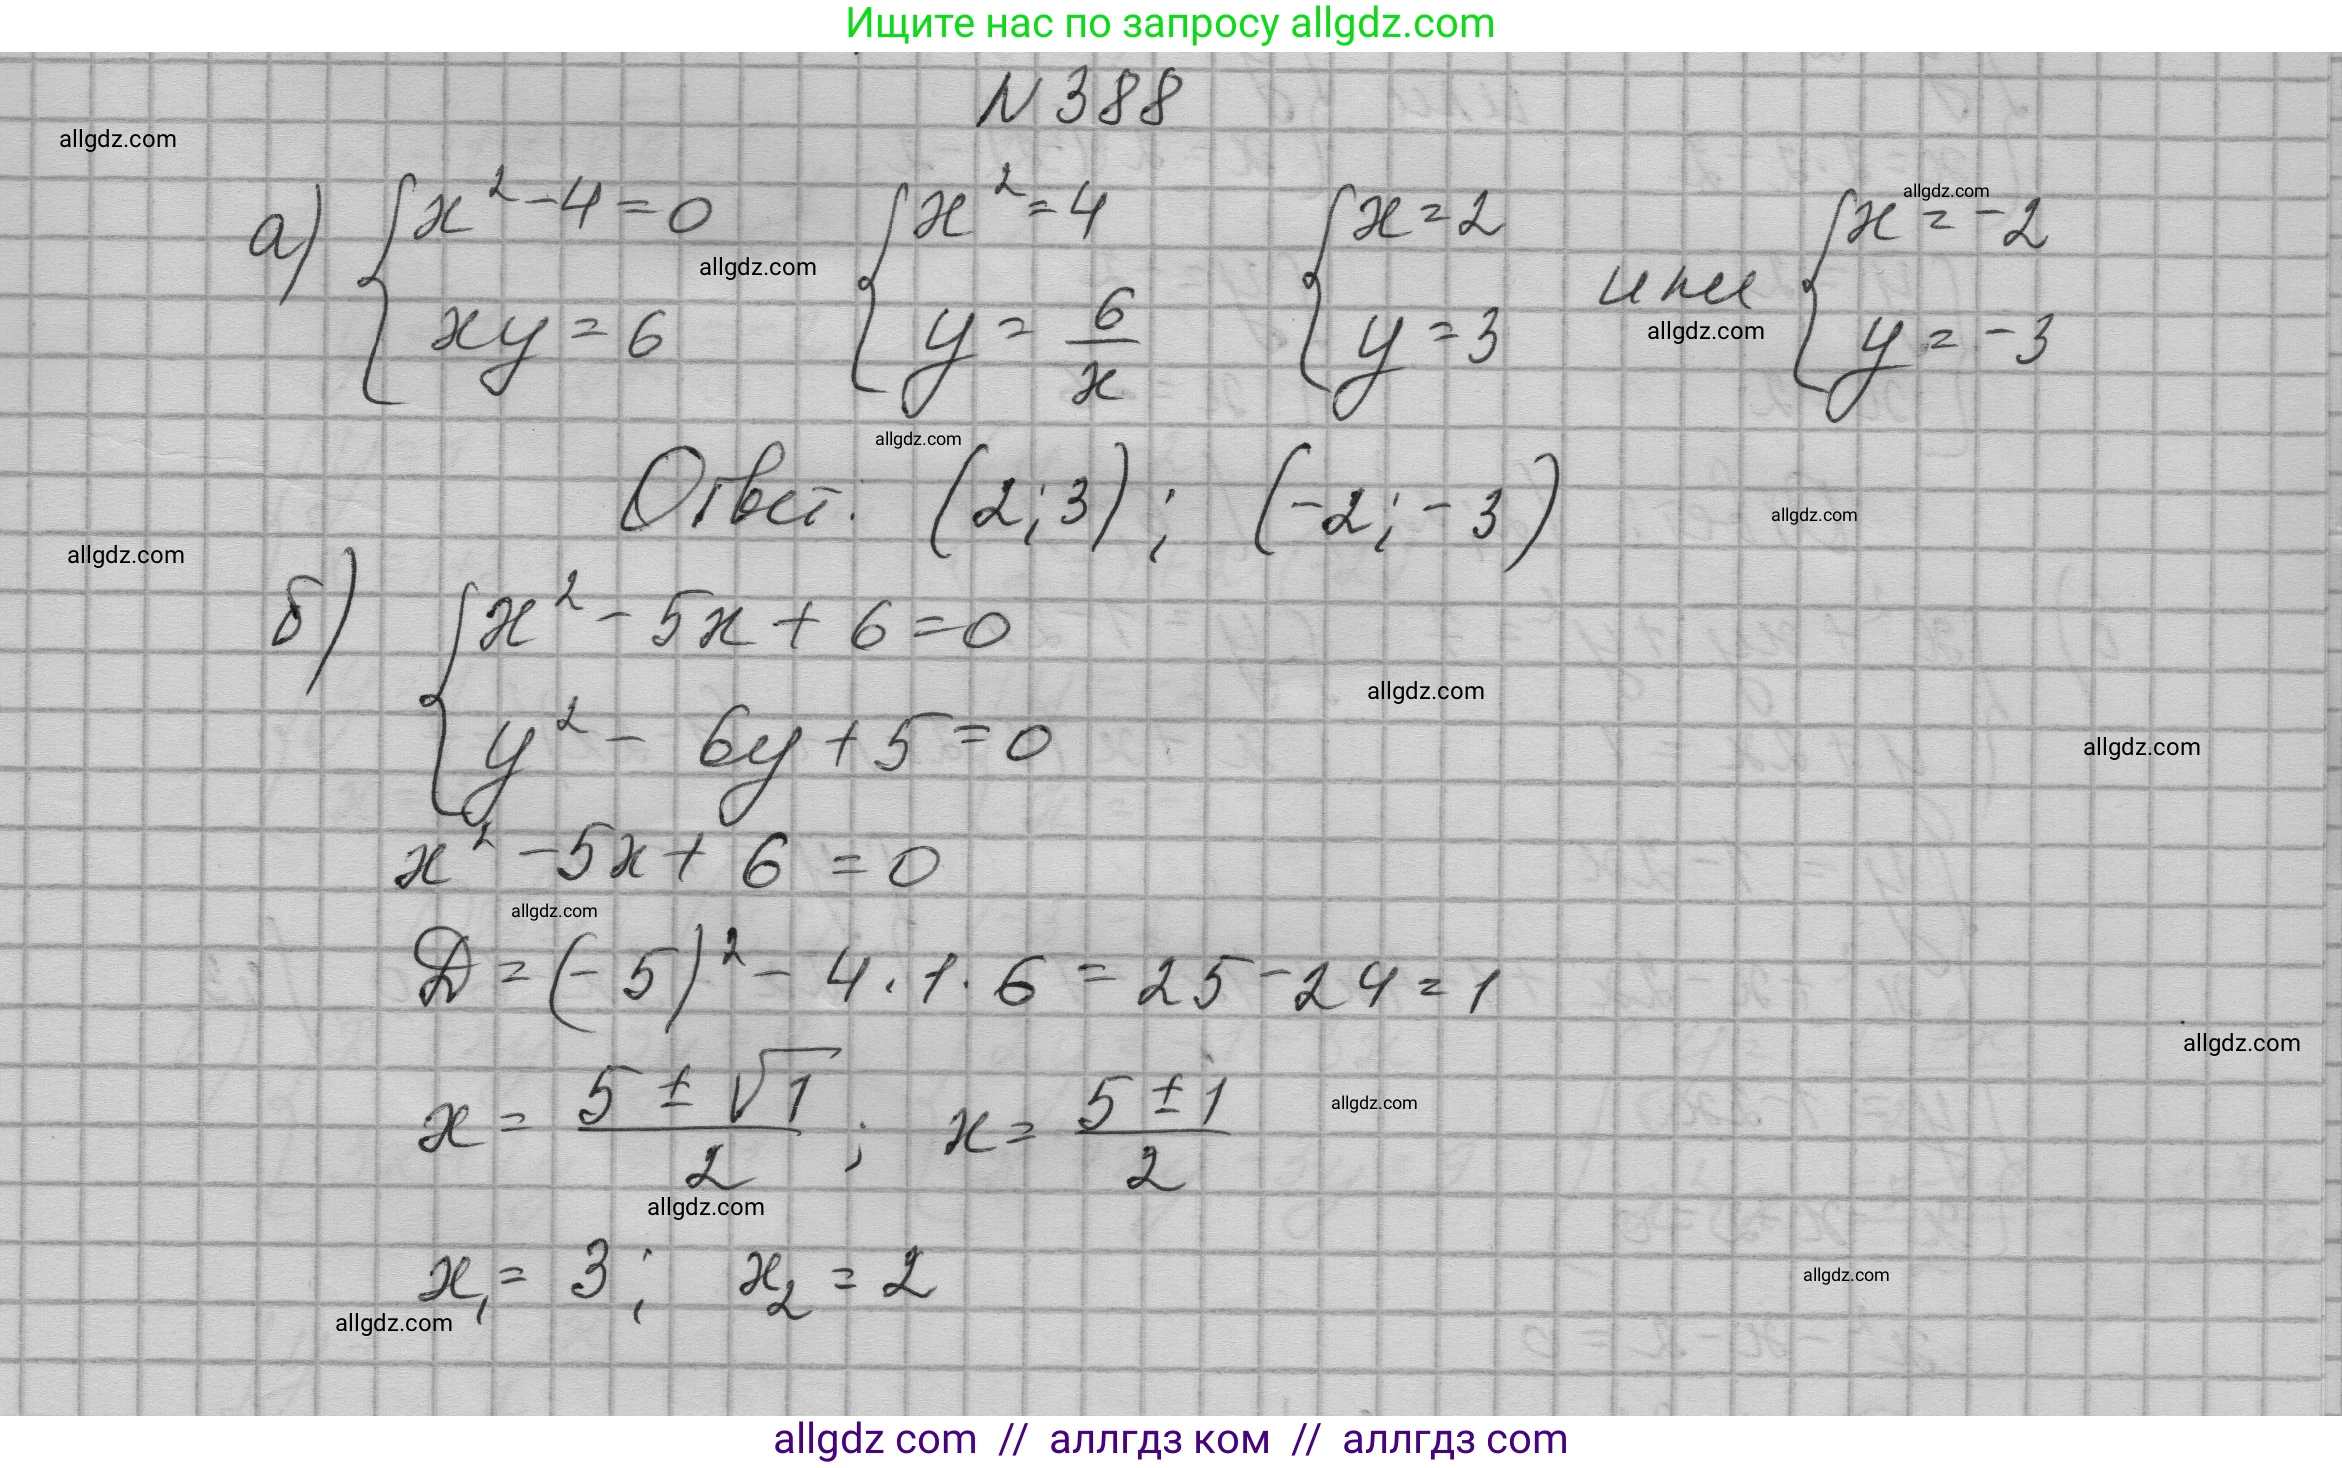 Ищите нас по запросу allgdz.com
N 388
allgdz.com
а) { x² - 4 = 0 { x² = 4 { x = 2 или { x = -2
xy = 6 y = 6/x y = 3 y = -3
allgdz.com
allgdz.com
allgdz.com
allgdz.com
Ответ: (2; 3); (-2; -3)
allgdz.com
allgdz.com
б) { x² - 5x + 6 = 0
y² - 6y + 5 = 0
allgdz.com
allgdz.com
x² - 5x + 6 = 0
allgdz.com
D = (-5)² - 4 · 1 · 6 = 25 - 24 = 1
allgdz.com
x = (5 ± √1)/2 ; x = (5 ± 1)/2
allgdz.com
allgdz.com
x₁ = 3; x₂ = 2
allgdz.com
allgdz.com
allgdz com // аллгдз ком // аллгдз com